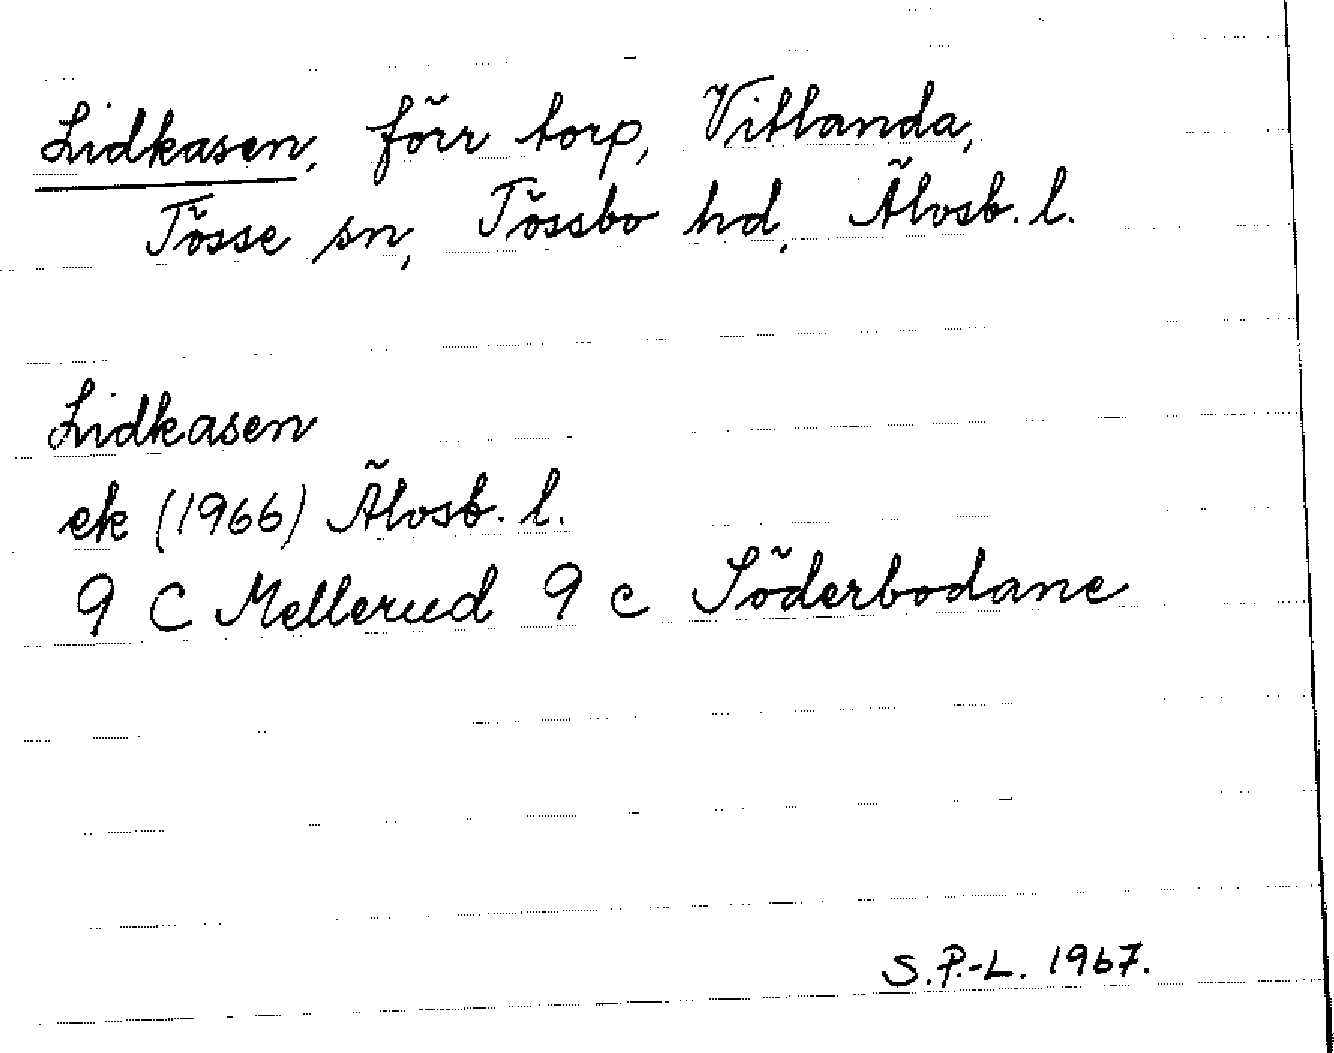 Lidkasen, förr torp, Vitlanda,
Tösse sn, Tössbo hd, Älvsb. l.
Lidkasen
ek (1966) Älvsb. l.
9 C Mellerud 9 c Söderbodane
S.P.-L. 1967.